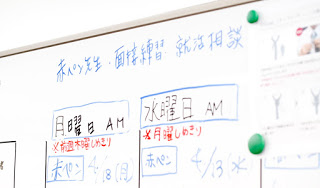 赤ペン先生・面接練習 就活相談
月曜日 AM
※前週木曜しめきり
赤ペン 4/18(月)
水曜日 AM
※月曜しめきり
赤ペン 4/13(水